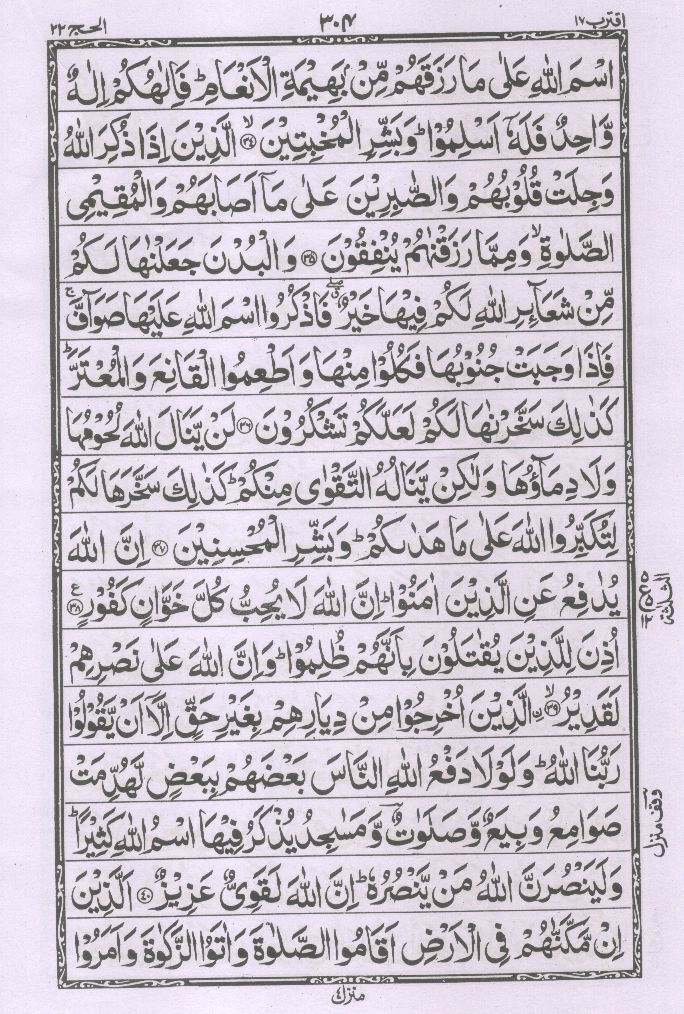 اقترب ١٧
٣٠٤
الحج ٢٢
اسْمَ اللّٰهِ عَلٰى مَا رَزَقَهُمْ مِّنْۢ بَهِيْمَةِ الْاَنْعَامِ ؕ فَاِلٰهُكُمْ اِلٰهٌ
وَّاحِدٌ فَلَهٗۤ اَسْلِمُوْا ؕ وَبَشِّرِ الْمُخْبِتِيْنَ ۙ﴿۳۴﴾ الَّذِيْنَ اِذَا ذُكِرَ اللّٰهُ
وَجِلَتْ قُلُوْبُهُمْ وَالصّٰبِرِيْنَ عَلٰى مَاۤ اَصَابَهُمْ وَالْمُقِيْمِى
الصَّلٰوةِ ۙ وَمِمَّا رَزَقْنٰهُمْ يُنْفِقُوْنَ ﴿۳۵﴾ وَالْبُدْنَ جَعَلْنٰهَا لَكُمْ
مِّنْ شَعَآئِرِ اللّٰهِ لَكُمْ فِيْهَا خَيْرٌ ۖ فَاذْكُرُوا اسْمَ اللّٰهِ عَلَيْهَا صَوَآفَّ ۚ
فَاِذَا وَجَبَتْ جُنُوْبُهَا فَكُلُوْا مِنْهَا وَاَطْعِمُوا الْقَانِعَ وَالْمُعْتَرَّ ؕ
كَذٰلِكَ سَخَّرْنٰهَا لَكُمْ لَعَلَّكُمْ تَشْكُرُوْنَ ﴿۳۶﴾ لَنْ يَّنَالَ اللّٰهَ لُحُوْمُهَا
وَلَا دِمَآؤُهَا وَلٰكِنْ يَّنَالُهُ التَّقْوٰى مِنْكُمْ ؕ كَذٰلِكَ سَخَّرَهَا لَكُمْ
لِتُكَبِّرُوا اللّٰهَ عَلٰى مَا هَدٰىكُمْ ؕ وَبَشِّرِ الْمُحْسِنِيْنَ ﴿۳۷﴾ اِنَّ اللّٰهَ
يُدٰفِعُ عَنِ الَّذِيْنَ اٰمَنُوْا ؕ اِنَّ اللّٰهَ لَا يُحِبُّ كُلَّ خَوَّانٍ كَفُوْرٍ ﴿۳۸﴾ ع
اُذِنَ لِلَّذِيْنَ يُقٰتَلُوْنَ بِاَنَّهُمْ ظُلِمُوْا ؕ وَاِنَّ اللّٰهَ عَلٰى نَصْرِهِمْ
لَقَدِيْرُ ۙ﴿۳۹﴾ ۨالَّذِيْنَ اُخْرِجُوْا مِنْ دِيَارِهِمْ بِغَيْرِ حَقٍّ اِلَّاۤ اَنْ يَّقُوْلُوْا
رَبُّنَا اللّٰهُ ؕ وَلَوْلَا دَفْعُ اللّٰهِ النَّاسَ بَعْضَهُمْ بِبَعْضٍ لَّهُدِّمَتْ
صَوَامِعُ وَبِيَعٌ وَّصَلَوٰتٌ وَّمَسٰجِدُ يُذْكَرُ فِيْهَا اسْمُ اللّٰهِ كَثِيْرًا ؕ
وَلَيَنْصُرَنَّ اللّٰهُ مَنْ يَّنْصُرُهٗ ؕ اِنَّ اللّٰهَ لَقَوِىٌّ عَزِيْزٌ ﴿۴۰﴾ اَلَّذِيْنَ
اِنْ مَّكَّنّٰهُمْ فِى الْاَرْضِ اَقَامُوا الصَّلٰوةَ وَاٰتَوُا الزَّكٰوةَ وَاَمَرُوْا
الثلثة
وقف منزل
منزل ٤